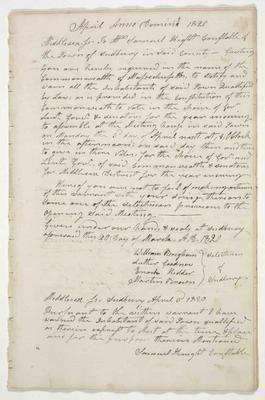 April Anno Domini 1820
Middlesex Ss. To Mr. Samuel Haight Constable of
the Town of Sudbury in said County Greeting
you are hereby required in the name of the
Commonwealth of Massachusetts to notify and
warn all the Inhabitants of said Town Qualified
by Law as is provided in the Constitution of this
Commonwealth to vote in the choice of Govr.
Lieut. Govr. & Senators for the year ensuing
to assemble at the Meeting house in said Town
on Monday the 3d of April next at 1 Clock
in the afternoon on said day then and there
to give in their Votes for the choice of Govr. and
Lieut. Govr. of said Commonwealth & senators
for Middlesex District for the year ensuing
Hereof you are not to fail of making return
of this Warrant with your doings thereon to
some one of the Selectmen previous to the
opening said Meeting.
Given under our hands & seals at Sudbury
aforesaid this 20 day of March A.D. 1820
William Brigham
Luther Goodnow
Selectmen
Hodder
of
Martin Brown
Sudbury
Middlesex Ss. Sudbury April 3 1820
Pursuant to the within warrant I have
warned the Inhabitants of said Town qualified
as therein exprest to Meet at the time & place
and for the purpose therein Mentioned
Samuel Haight Constable